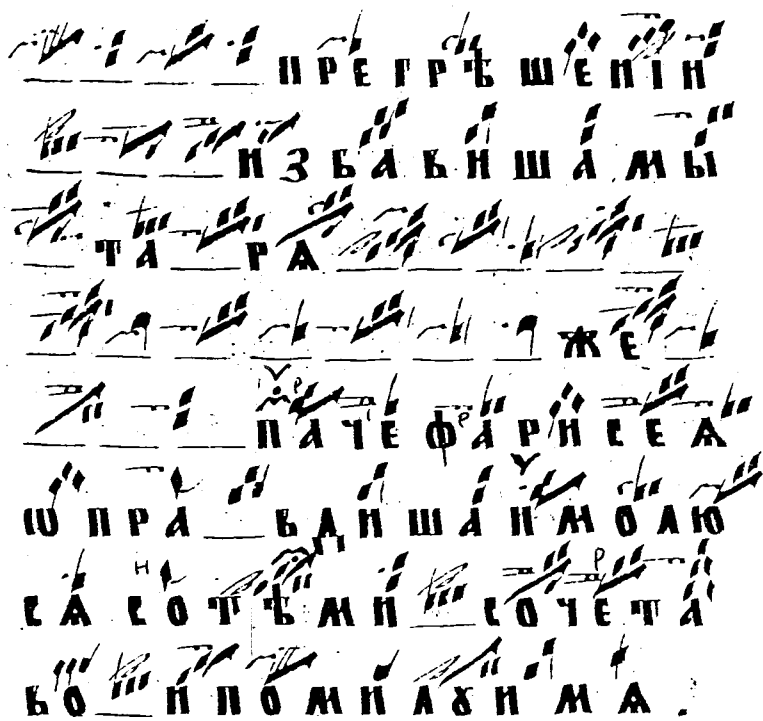 ПРЕГРѢШЕНІИ
ИЗБАВИШАМЫ
ТАРѦ
ЖЕ
ПАЧЕФАРИСЕѦ
ѠПРАВДИШАИМОЛЮ
СѦСОТѢМИСОЧЕТА
ВОИПОМИЛꙊИМѦ.